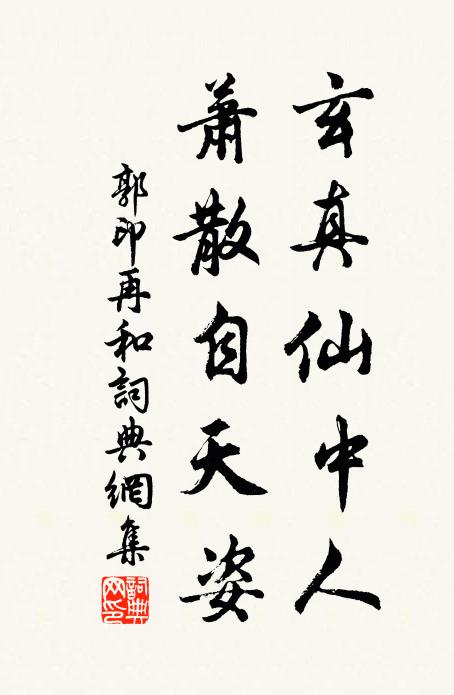 玄真仙中人
蕭散自天姿
郭印再和詞典網集
詞典網印